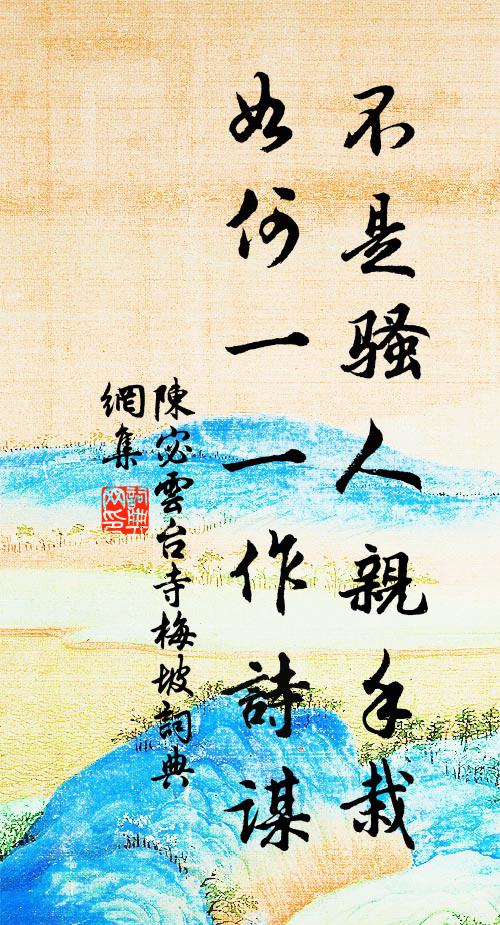 不是騷人親手栽
如何一一作詩謀
陳宓雲台寺梅坡詞典
網集
詞典
网印